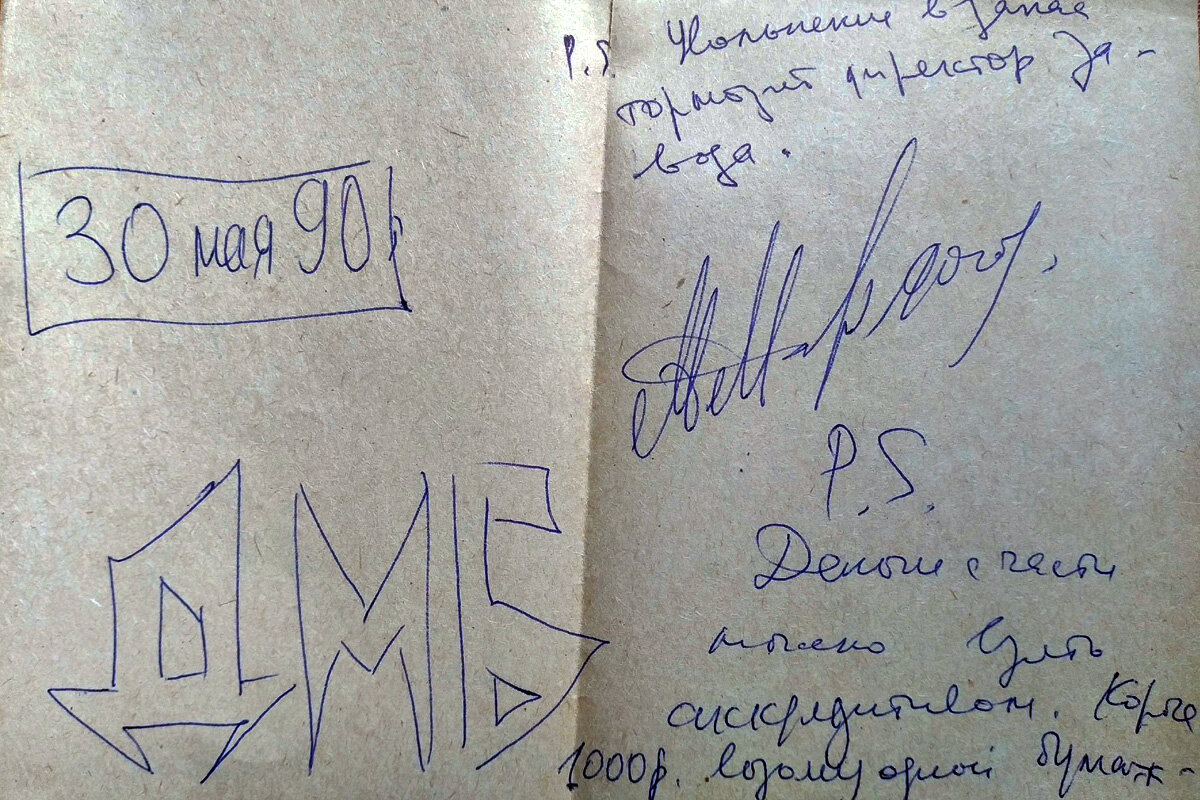 30 мая 90г
ДМБ
P.S. Увольнение в запас
тормозит директор за-
вода.
P.S.
Деньги с части
можно взять
аккредитивом. Короче
1000р. возьму одной бумаж-